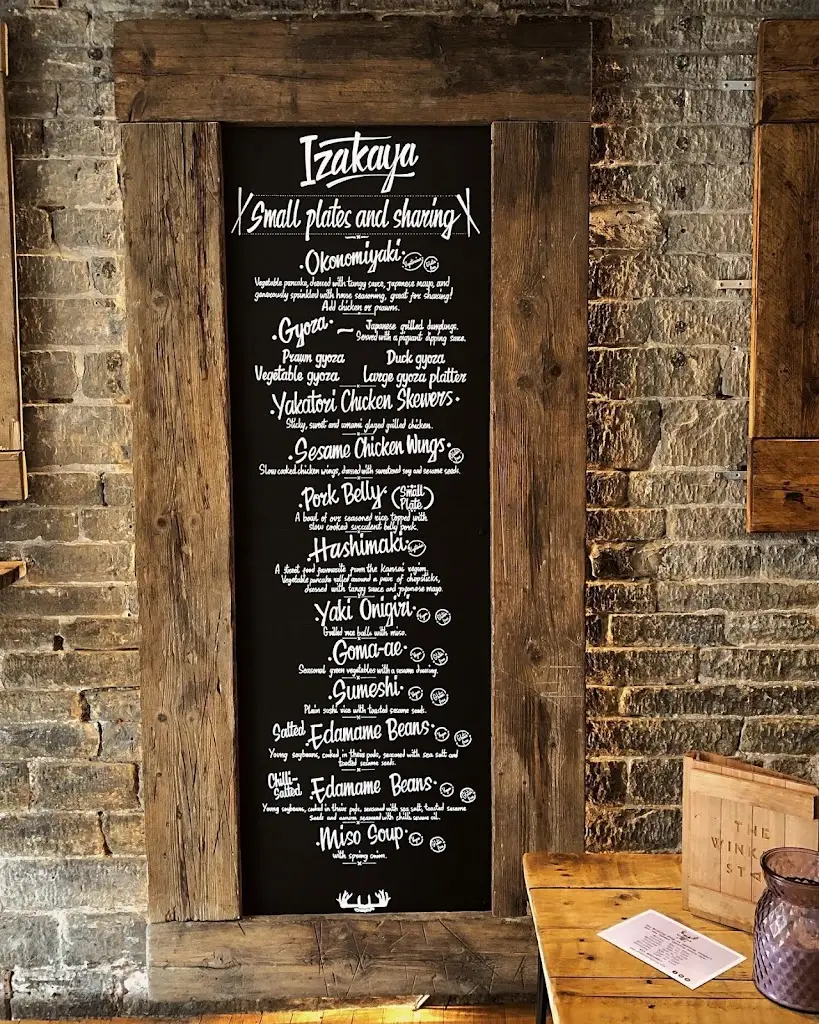 Izakaya
Small plates and sharing
Okonomiyaki
Vegetable pancake, dressed with tangy sauce, japanese mayo, and
generously sprinkled with house seasoning, great for sharing!
Add chicken or prawns.
Gyoza ~ Japanese grilled dumplings.
Served with a piquant dipping sauce.
Prawn gyoza Duck gyoza
Vegetable gyoza Large gyoza platter
Yakatori Chicken Skewers
Sticky, sweet and umami glazed grilled chicken.
Sesame Chicken Wings
Slow cooked chicken wings, dressed with sweetened soy and sesame seeds.
Pork Belly (Small Plate)
A bowl of our seasoned rice topped with
slow cooked succulent belly pork.
Hashimaki
A street food favourite from the Kansai region.
Vegetable pancake rolled around a pair of chopsticks,
dressed with tangy sauce and japanese mayo.
Yaki Onigiri
Grilled rice balls with miso.
Goma-ae
Seasonal green vegetables with a sesame dressing.
Sumeshi
Plain sushi rice with toasted sesame seeds.
Salted Edamame Beans
Young soybeans, cooked in their pods, seasoned with sea salt and
toasted sesame seeds.
Chilli-Salted Edamame Beans
Young soybeans, cooked in their pods, seasoned with sea salt, toasted sesame
seeds and seasoned with chilli sesame oil.
Miso Soup
with spring onion.
THE